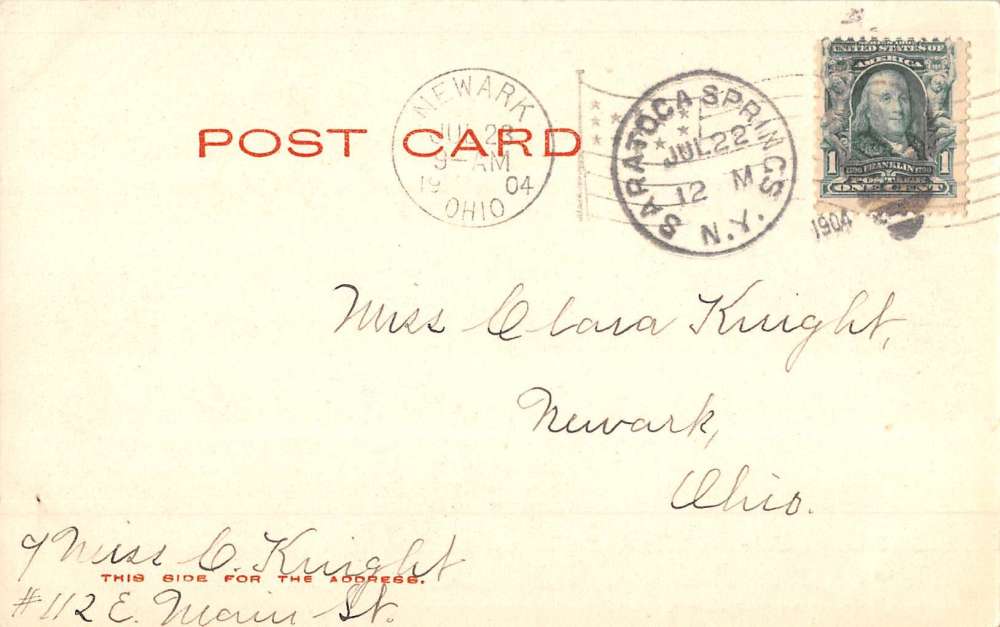 UNITED STATES OF
AMERICA
1 FRANKLIN 1
POSTAGE
ONE CENT
NEWARK
JUL 23
9-AM
19 04
OHIO
SARATOGA SPRINGS
JUL 22
12 M
N.Y.
1904
POST CARD
Miss Clara Knight,
Newark,
Ohio.
Miss C. Knight
THIS SIDE FOR THE ADDRESS.
#112 E. Main St.